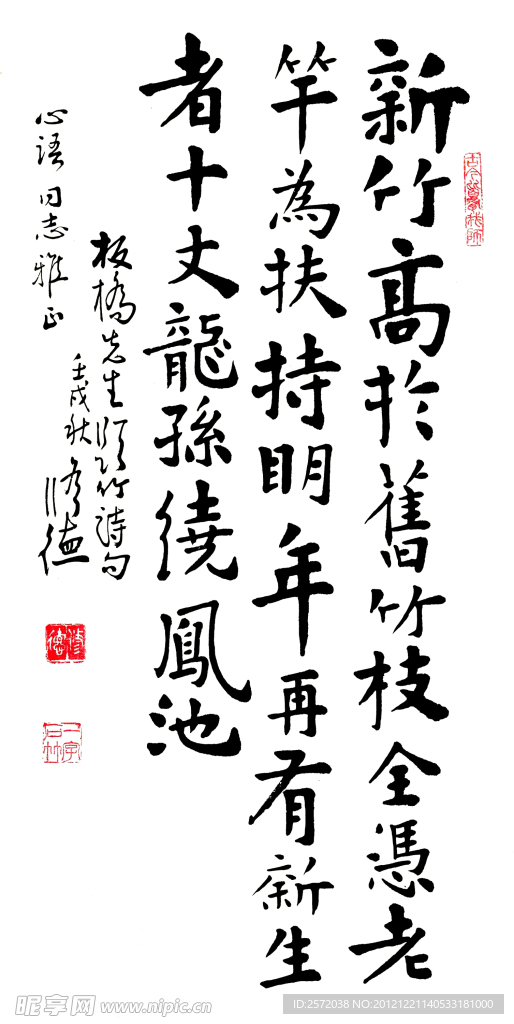 新竹高於舊竹枝全憑老
竿為扶持明年再有新生
者十丈龍孫繞鳳池
板橋先生題竹詩句
壬戌秋 修德
心語同志雅正
昵享网 www.nipic.cn
ID:2572038 NO:20121221140533181000